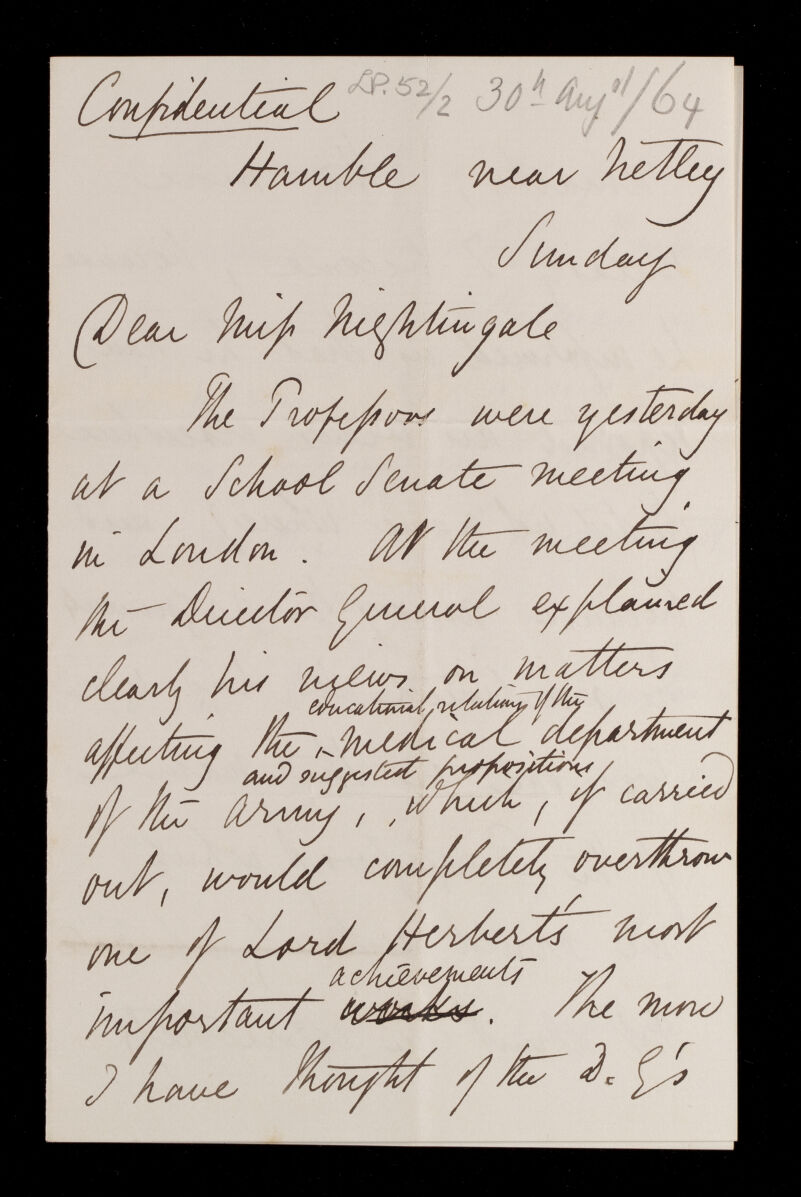 Confidential LP. 52/2 30th Augst/64
Hamble near Netley
Sunday
Dear Miss Nightingale
The Professors were yesterday
at a School Senate meeting
in London. At the meeting
the Director General explained
clearly his views on matters
educational relations of the
affecting the medical department
and suggested propositions
of the Army, , which, if carried
out, would completely overthrow
one of Lord Herbert's most
achievements
important works. The more
I have thought of the D. G's